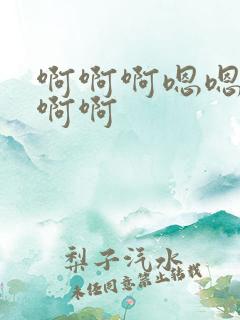 啊啊啊嗯嗯
啊啊
梨子汽水
未经同意禁止转载